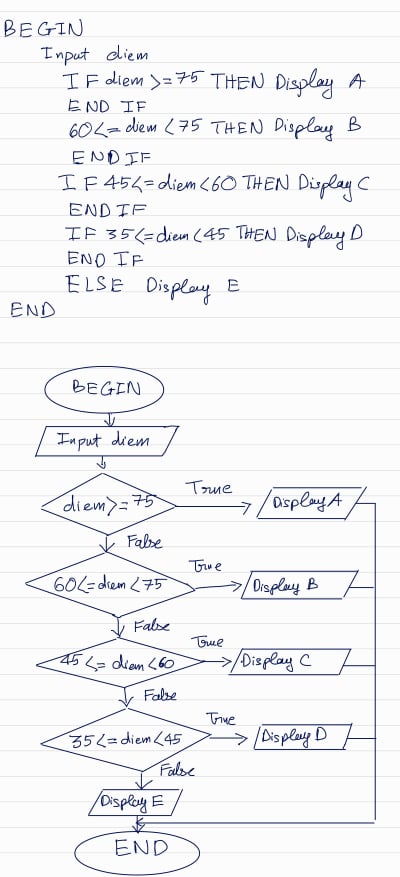 BEGIN
Input diem
IF diem >= 75 THEN Display A
END IF
60<= diem <75 THEN Display B
ENDIF
IF 45<= diem<60 THEN Display C
ENDIF
IF 35<= diem<45 THEN Display D
END IF
ELSE Display E
END
BEGIN
Input diem
diem>=75
True
Display A
False
60<=diem<75
True
Display B
False
45<=diem<60
True
Display C
False
35<=diem<45
True
Display D
False
Display E
END